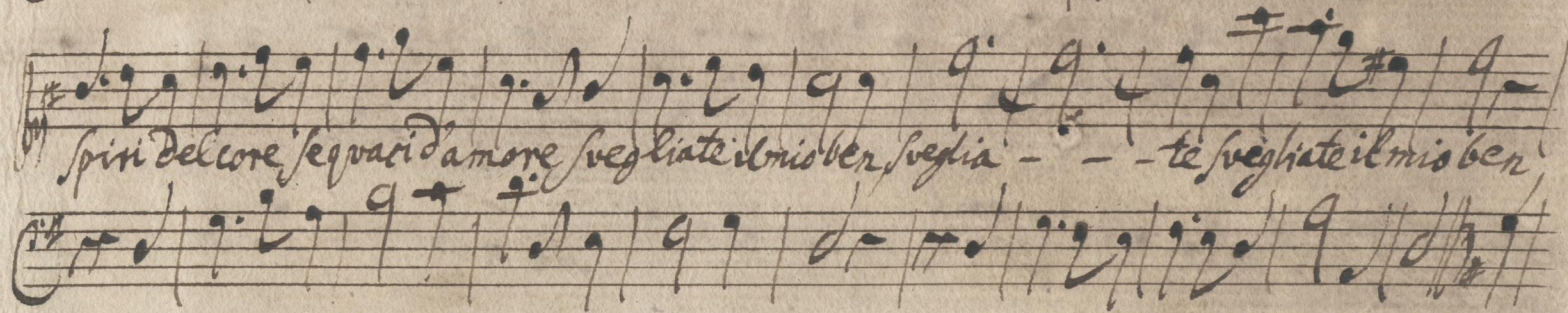 spiri del core sequaci d'amore svegliate il mio ben sveglia - - - te svegliate il mio ben